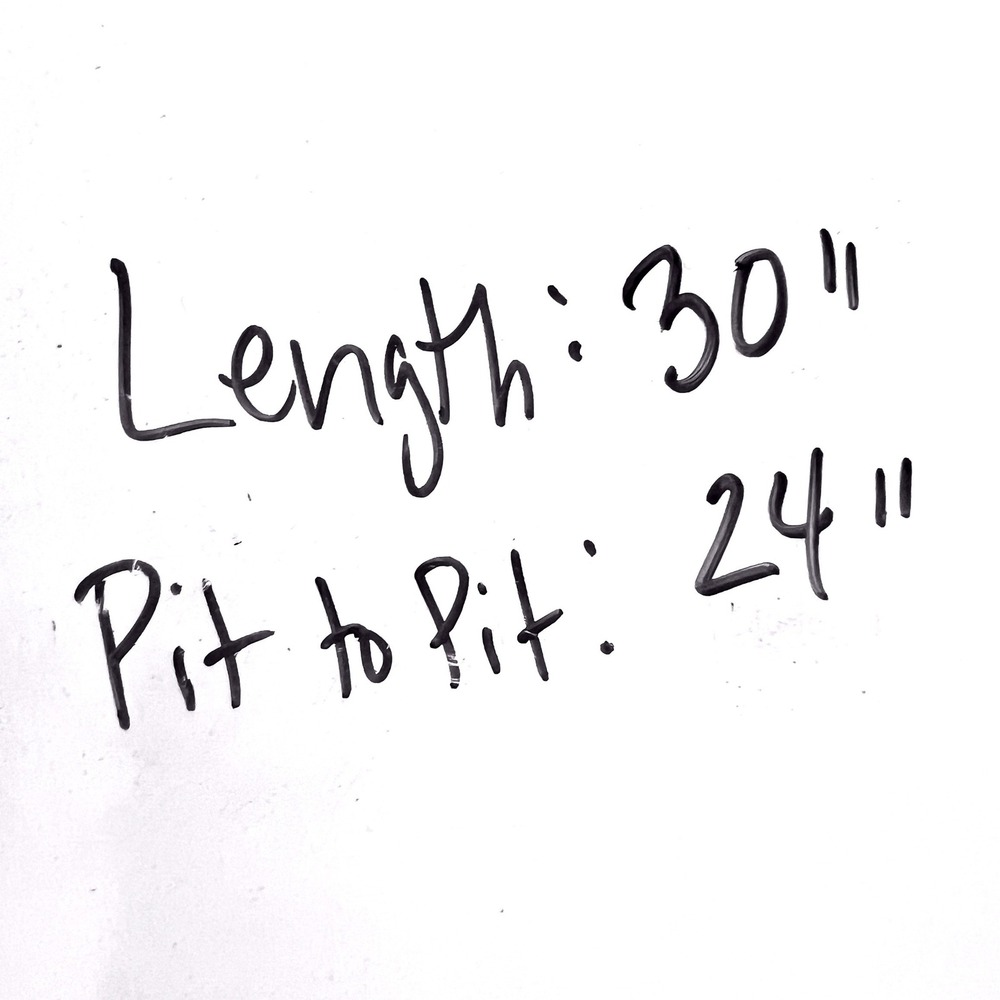 Length: 30"
Pit to Pit: 24"